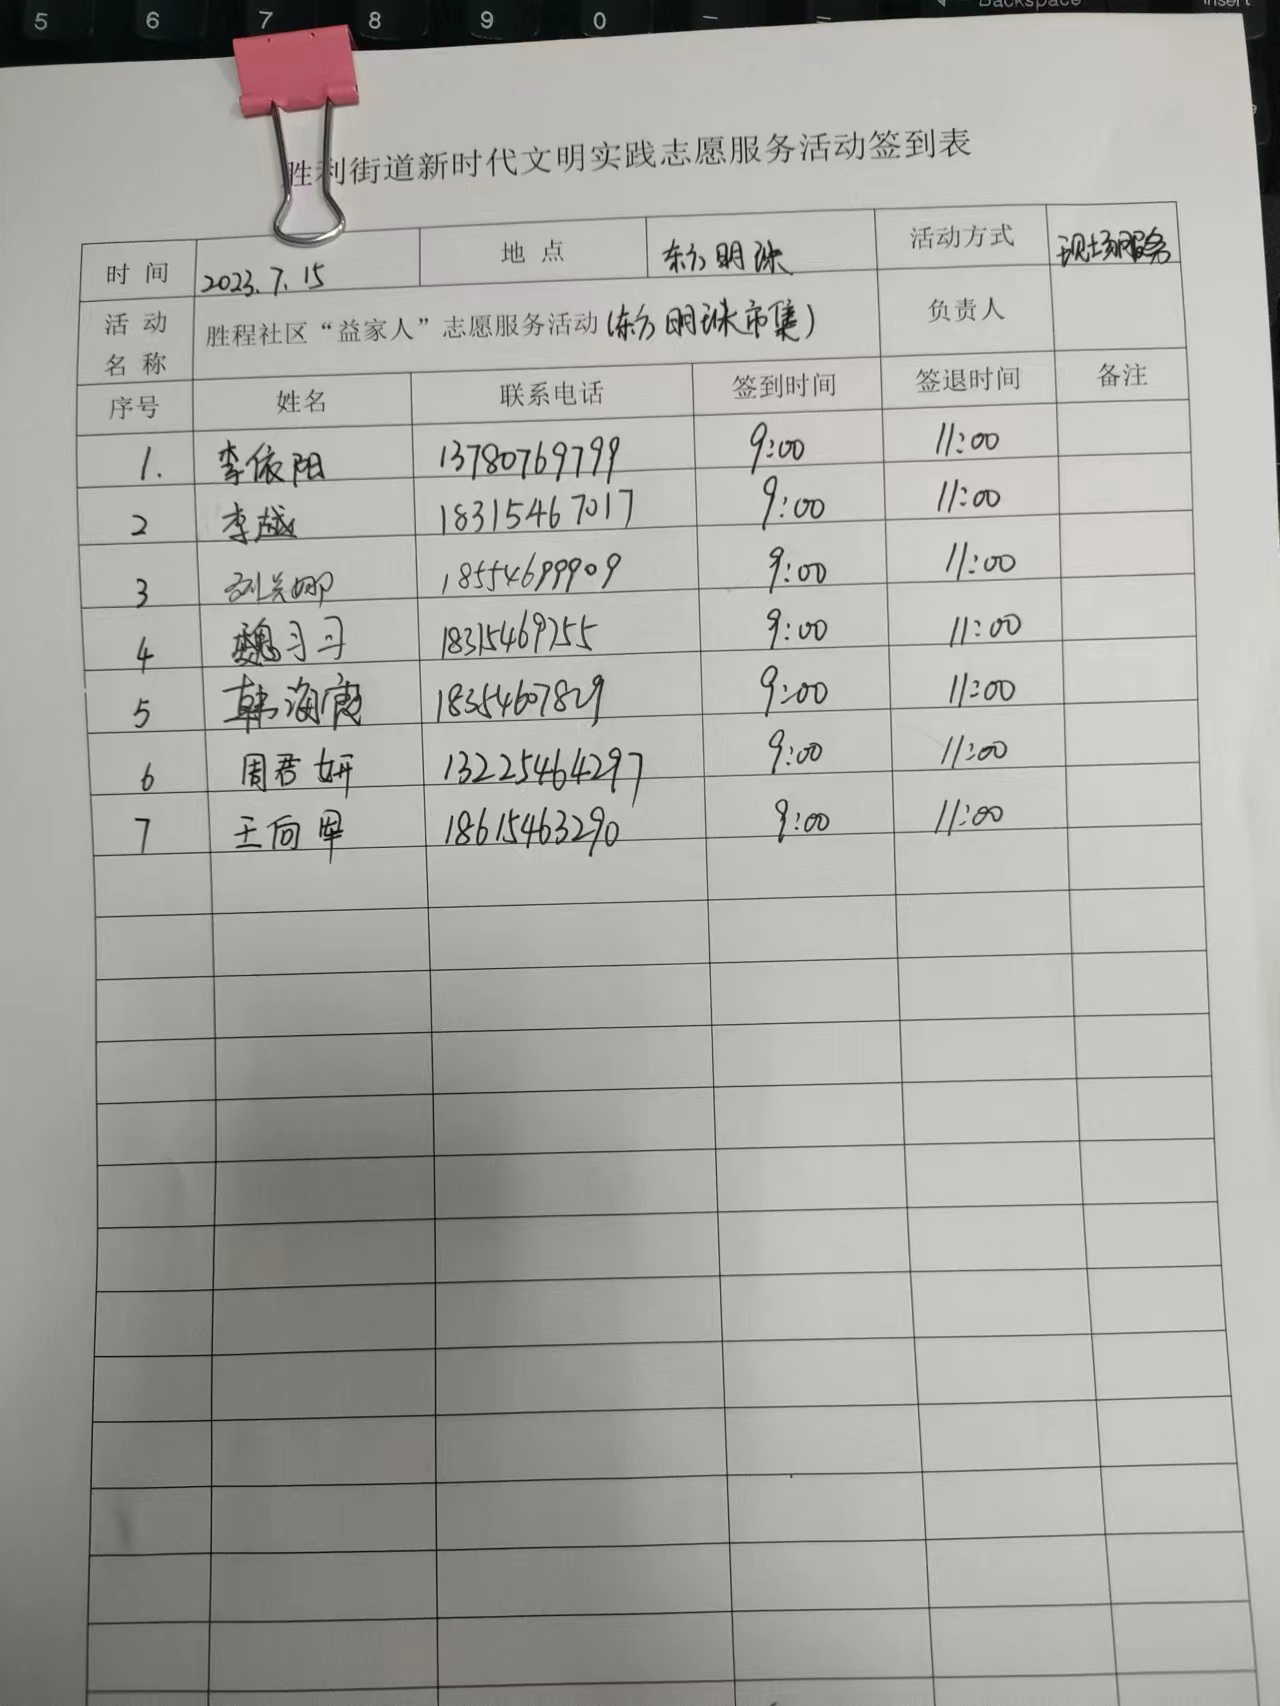 5 6 7 8 9 0
Backspace
Insert
胜利街道新时代文明实践志愿服务活动签到表
时间 2023.7.15 地点 东方明珠 活动方式 现场服务
活动名称 胜程社区“益家人”志愿服务活动(东方明珠市集) 负责人
序号 姓名 联系电话 签到时间 签退时间 备注
1. 李依阳 13780769799 9:00 11:00
2 李越 18315467017 9:00 11:00
3 刘关娜 18554699909 9:00 11:00
4 魏习习 18315469755 9:00 11:00
5 韩海霞 18354607829 9:00 11:00
6 周君妍 13225464297 9:00 11:00
7 王向军 18615463290 9:00 11:00